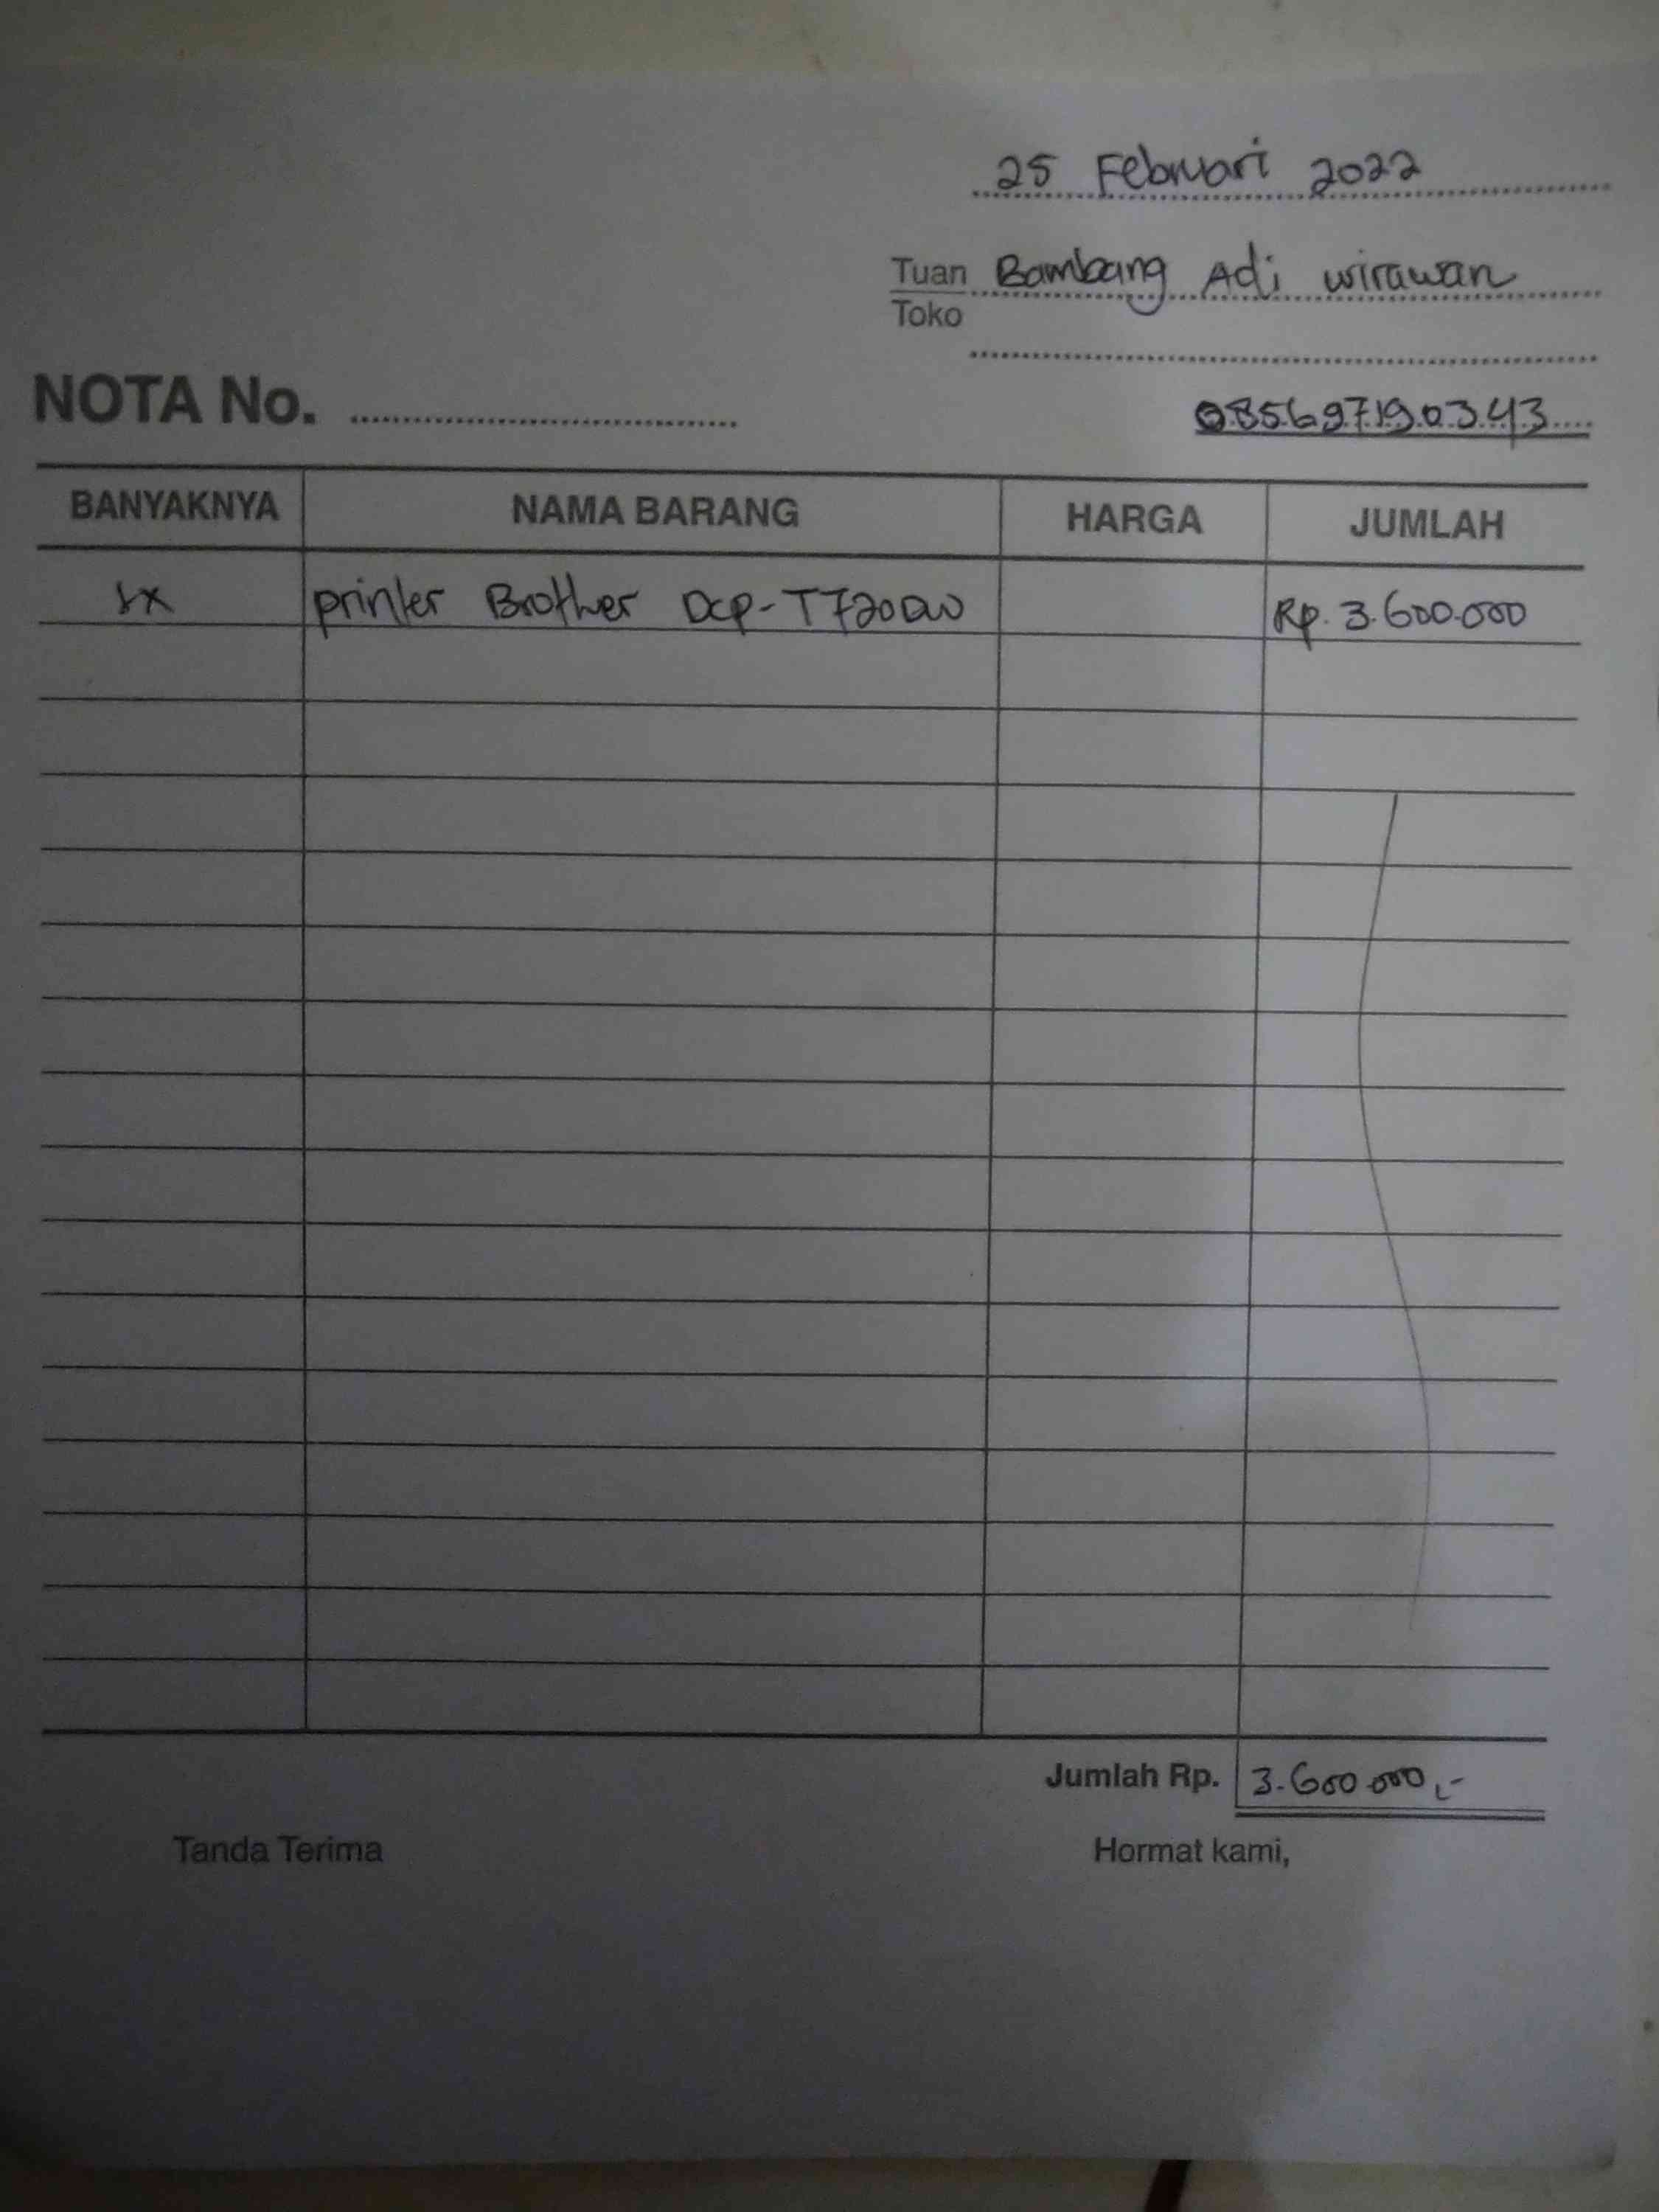 25 Februari 2022
Tuan Bambang Adi wirawan
Toko
NOTA No. 085697190343
BANYAKNYA NAMA BARANG HARGA JUMLAH
1x printer Brother Dcp-T720DW Rp. 3.600.000
Jumlah Rp. 3.600.000,-
Tanda Terima Hormat kami,